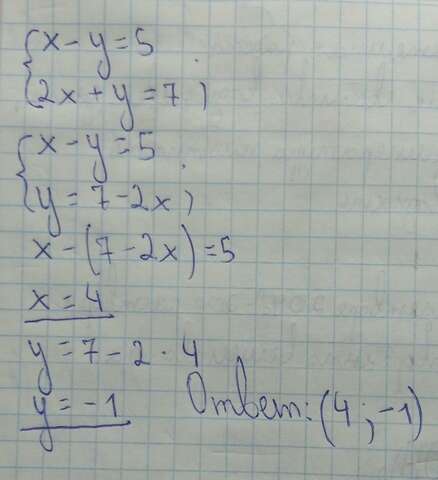 x - y = 5
2x + y = 7;
x - y = 5
y = 7 - 2x;
x - (7 - 2x) = 5
x = 4
y = 7 - 2 · 4
y = -1 Ответ: (4; -1)